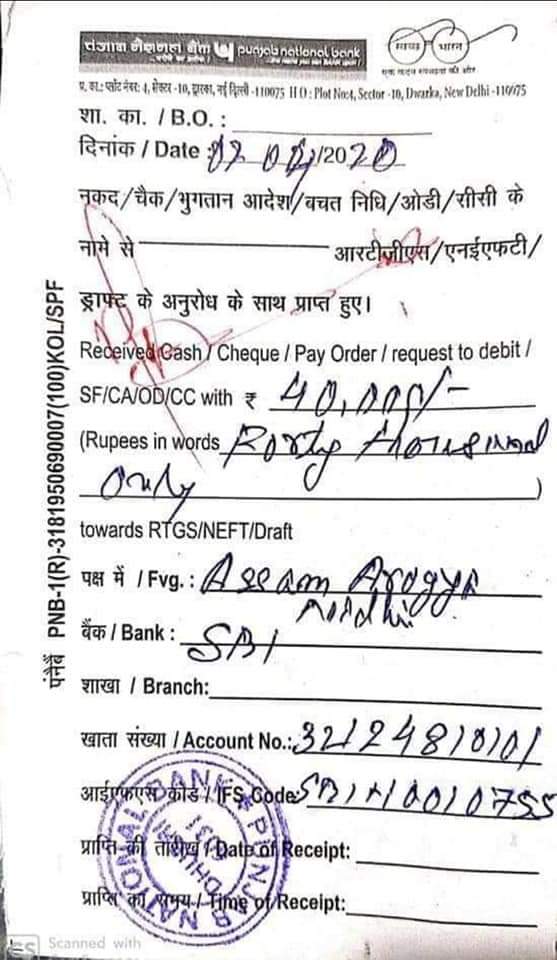 पंजाब नैशनल बैंक punjab national bank
स्वच्छ भारत
एक कदम स्वच्छता की ओर
प्र. का.: प्लॉट नंबर: 4, सेक्टर -10, द्वारका, नई दिल्ली -110075 H O : Plot No:4, Sector -10, Dwarka, New Delhi -110075
शा. का. / B.O. :
दिनांक / Date : 02 04/2020
नकद/चैक/भुगतान आदेश/बचत निधि/ओडी/सीसी के
नामे से आरटीजीएस/एनईएफटी/
ड्राफ्ट के अनुरोध के साथ प्राप्त हुए।
Received Cash / Cheque / Pay Order / request to debit /
SF/CA/OD/CC with ₹ 40,000/-
(Rupees in words Forty thousand
only )
towards RTGS/NEFT/Draft
पक्ष में / Fvg. : Assam Arogya
Nidhi
बैंक / Bank : SBI
शाखा / Branch:
खाता संख्या / Account No.: 32124810101
आईएफएस कोड / IFS Code: SBIN0010755
प्राप्ति की तारीख / Date of Receipt:
प्राप्ति का समय / Time of Receipt:
पंनैबैं PNB-1(R)-3181950690007(100)KOL/SPF
PUNJAB NATIONAL BANK
CS Scanned with